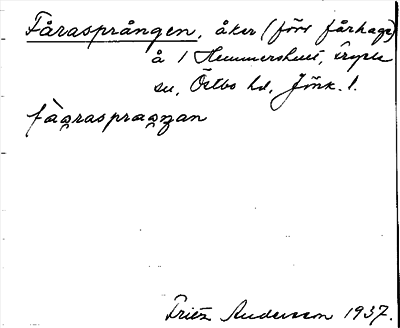 Fårasprången, åker (förr fårhage)
å 1 Hemmershult,
sn, Östbo hd, Jönk. l.
fàgraspragŋan
Fritz Andersson 1937.